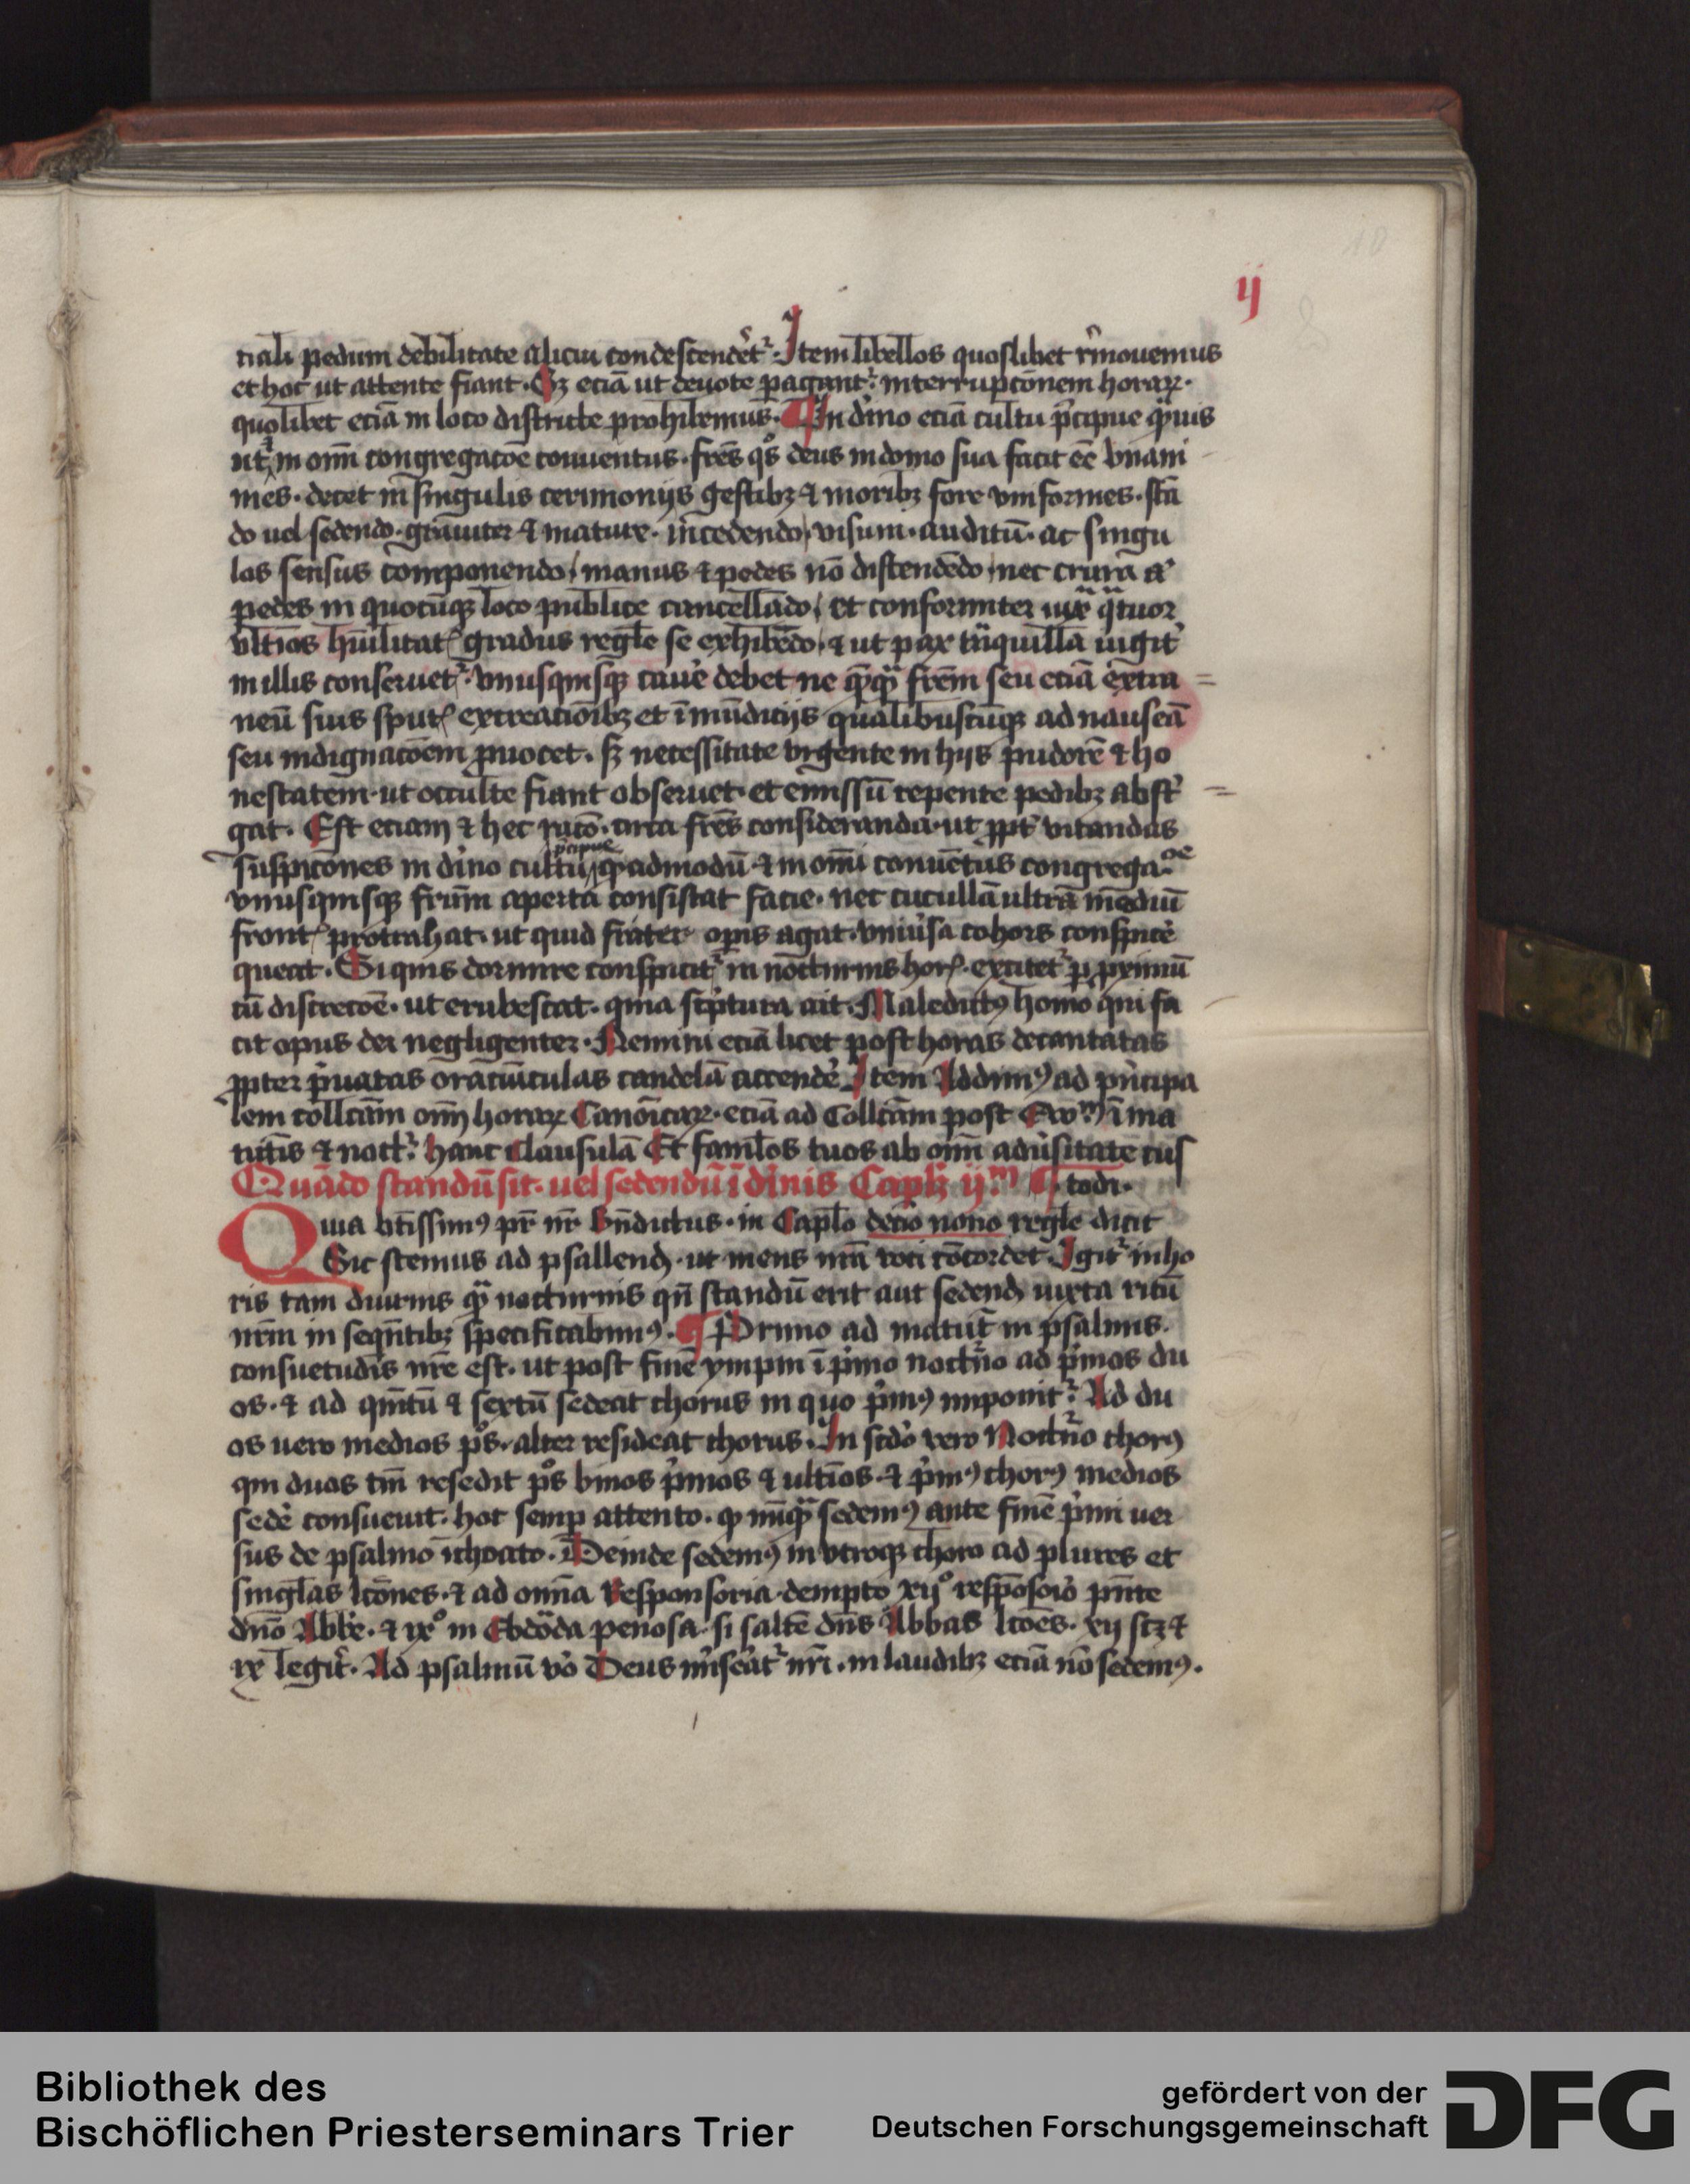 ij
tiali pedum debilitate alicui condescendēt᷑. Item libellos quoslibet rͥmouemus
et hoc ut attente fiant. Sꝫ eciā ut deuote ꝑagant᷑. interrupcōnem horaꝝ.
quolibet eciā in loco districte prohibemus. ¶ In diͥno eciā cultu pͥcipue
in om̄i congregacōe conuentus. fr̄es qͦs deus in domo sua facit eē vnani
mes. decet in singulis cerimonijs gestibꝫ ⁊ moribꝫ fore vniformes. stā
do uel sedendo. grauiter ⁊ mature. incedendo, visum. auditū. ac singu
los sensus componendo, manus ⁊ pedes nō distendēdo, nec crura
pedes in quocūqꝫ loco publice cancellādo, et conformiter iuxͣ qͣtuor
vltīos hūilitatꝭ gradus regl̄e se exhibēdo, ⁊ ut pax tͣnquilla iugit᷑
in illis conseruet᷑. vnusquisqꝫ cauē debet ne fr̄em seu eciā extra
neū suis sputꝭ excreacionībꝫ et īmūdicijs qualibuscūqꝫ ad nauseā
seu indignacōem ꝓuocet. sꝫ necessitate vrgente in hijs pudorē ⁊ ho
nestatem. ut occulte fiant obseruet. et emissū repente pedibꝫ abst᷑
gat. Est eciam ⁊ hec racō. circa fr̄es consideranda. ut ꝓpt᷑ vitandas
pͥcipue
suspicōnes in diͥno cultu, qͥadmodū ⁊ in om̄i conuētus congregac̄oe
vnusquisqꝫ fr̄um aperta consistat facie. nec cucullā ultra mediū
frontꝭ protrahat. ut quid frater opis agat. vniuͥsa cohors conspicē
queat. Si quis dormire conspicit᷑ in nocturnis horꝭ. excitet᷑ ꝑ ꝓximū
cū discrecōe. ut erubescat. quia scͥptura ait. Maledictꝰ homo qui fa
cit opus dei negligenter. Nemini eciā licet post horas decantatas
ꝓpter pͥuatas oraciūculas candelā accendē. Item Addimꝰ ad pͥncipa
lem collc̄am om̄ horaꝝ Canōicaꝝ. eciā ad Collc̄am post ī ma
tutīs ⁊ noct᷑. hanc clausulā Et famlos tuos ab om̄i aduͥsitate cus
Quādo standū sit. uel sedendū ī diͥnis Capl̄ꝫ ijᵐ ¶ todi.
Quia bt̄issimꝰ pr̄ nr̄ Bn̄dictus. in Capl̄o deciͦ nono regl̄e dicit
Sic stemus ad psallendꝫ. ut mens nr̄a voci cōcordet. Igit᷑ in ho
ris tam diurnis qͣ nocturnis qn̄ standū erit aut sedendꝫ iuxta ritū
nr̄m in seqn̄tibꝫ specificabimꝰ. ¶ Primo ad matut᷑ in psalmis.
consuetudīs nr̄e est. ut post finē ympni ī pͥmo noct̄no ad pͥmos du
os. ⁊ ad quītū ⁊ sextū sedeat chorus in quo pͥmꝰ imponit᷑. Ad du
os uero medios pͦs. alter resideat chorus. In scd̄o vero Noct̄no chorꝰ
qui duos tm̄ resedit pͦs binos pͥmos ⁊ ultīos. ⁊ pͥmꝰ chorꝰ medios
sedē consueuit. hoc semꝑ attento. ꝙ nūqͣ sedemꝰ ante finē pͥmi uer
sus de psalmo īchoato. Deinde sedemꝰ in vtroqꝫ choro ad plures et
singl̄as lc̄ones. ⁊ ad omn̄a Responsoria. dempto xijͦ respōsoriͦ pn̄te
dn̄o Abbē. ⁊ ixͦ in Ebdōda penosa. si saltē dn̄s Abbas lc̄oes. xij scꝫ ⁊
ix legit᷑. Ad psalmū vͦo Deus miͥseat᷑ nr̄i. in laudibꝫ eciā nō sedemꝰ.
Bibliothek des
Bischöflichen Priesterseminars Trier
gefördert von der
Deutschen Forschungsgemeinschaft
DFG